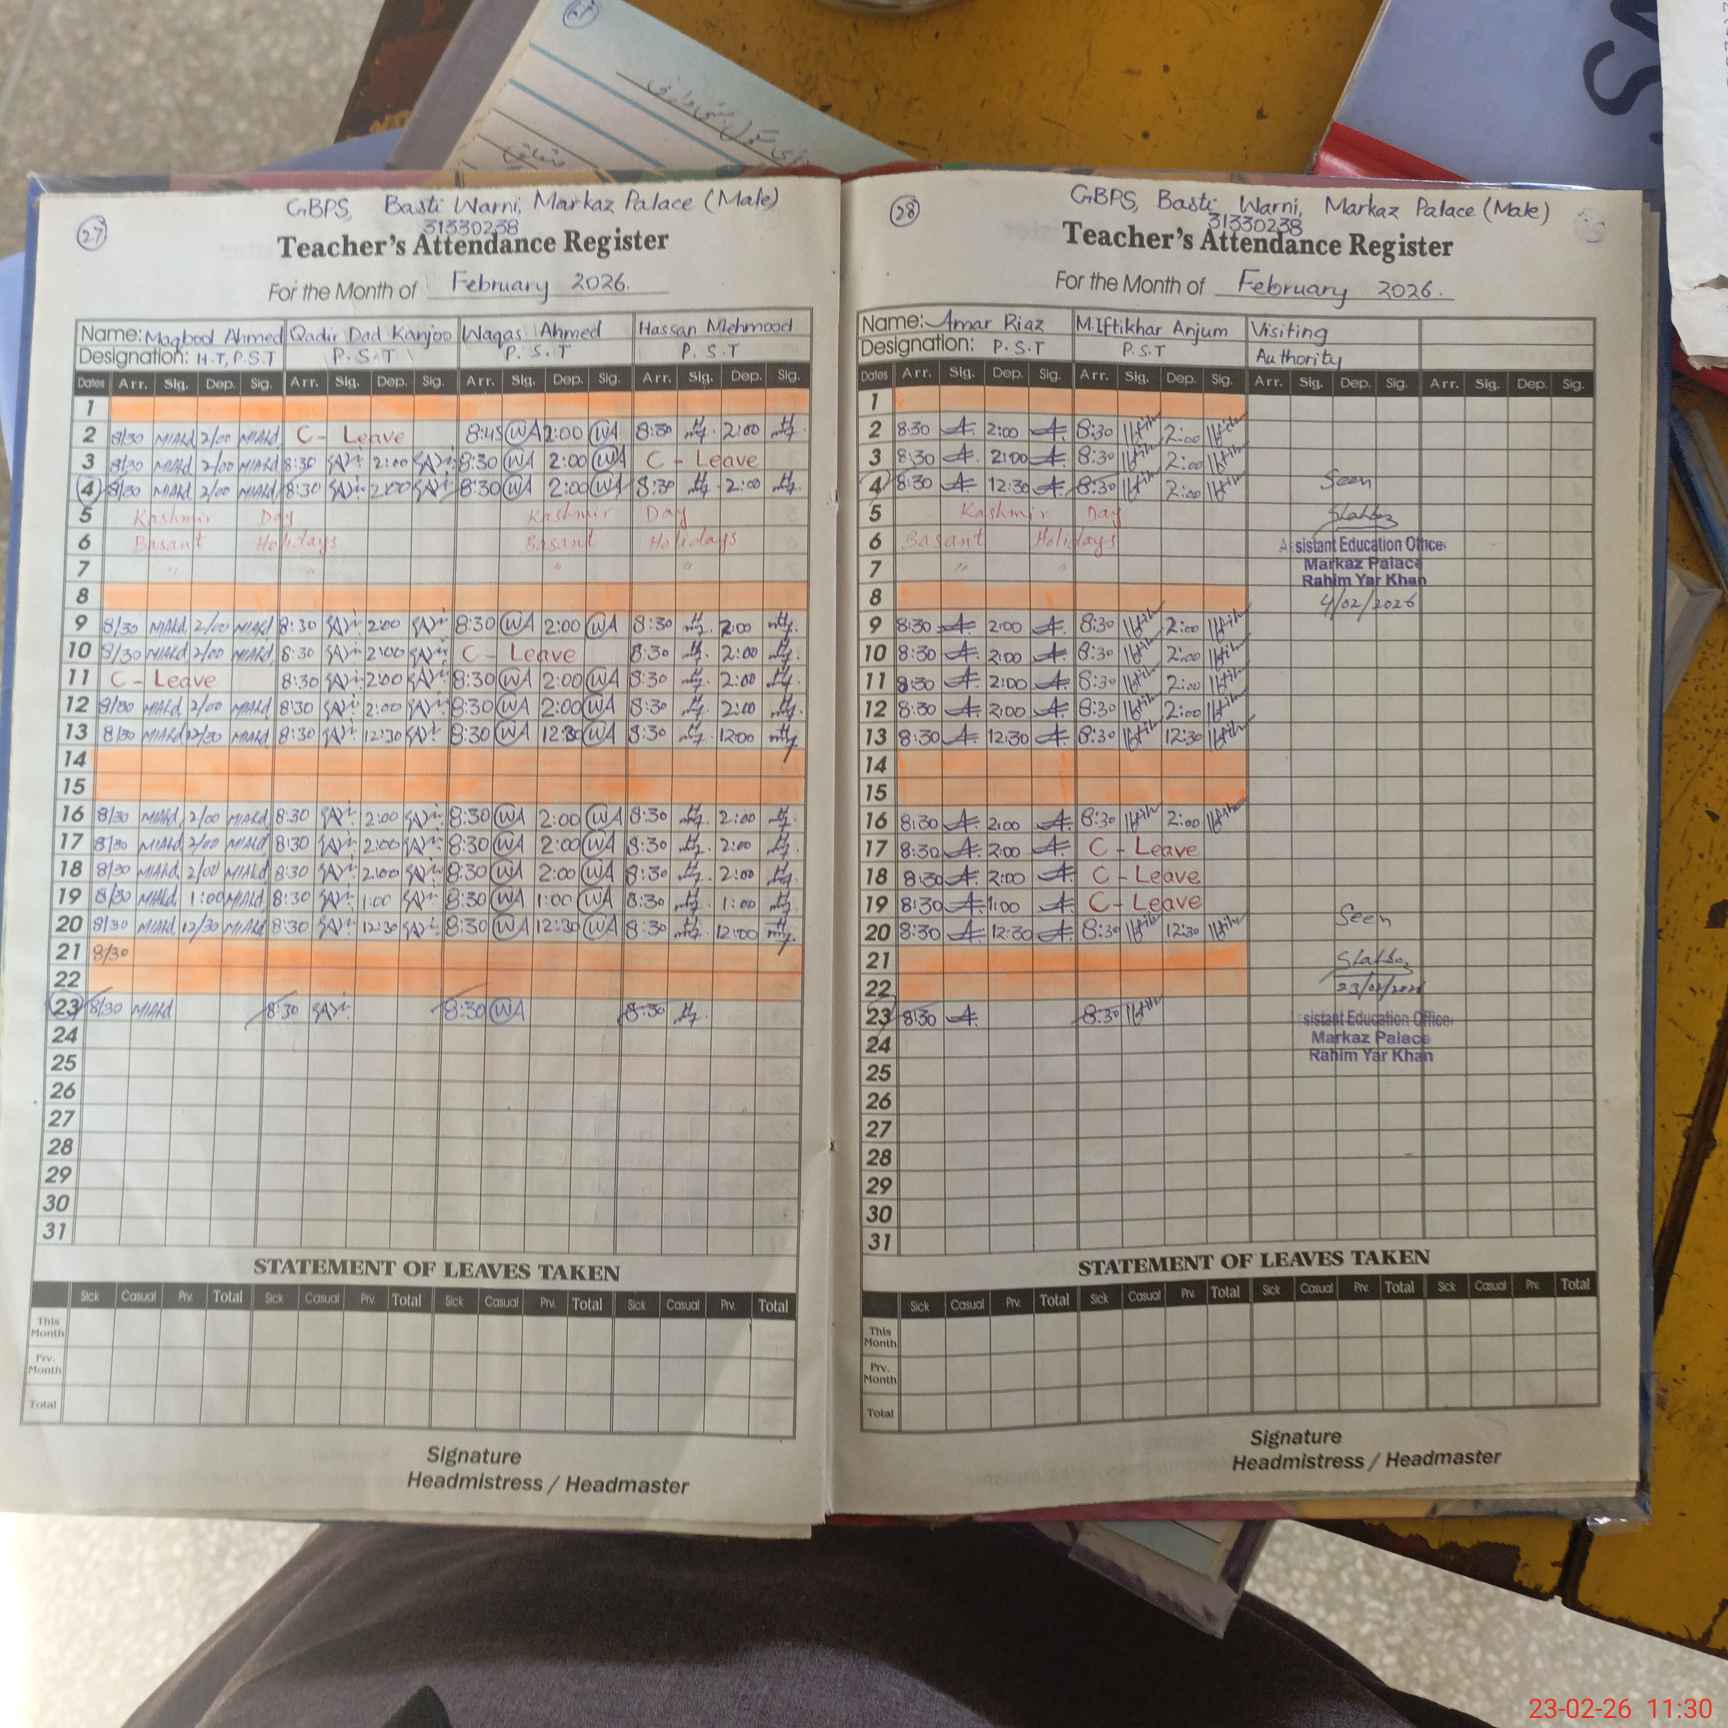 27
GBPS, Basti Warni, Markaz Palace (Male)
31330238
Teacher's Attendance Register
For the Month of February 2026.
Name: Maqbool Ahmed Qadir Dad Kanjoo Waqas Ahmed Hassan Mehmood
Designation: H.T, P.S.T P.S.T P.S.T P.S.T
Dates Arr. Sig. Dep. Sig. Arr. Sig. Dep. Sig. Arr. Sig. Dep. Sig. Arr. Sig. Dep. Sig.
1
2 8/30 2/00 C - Leave 8:45 WA 2:00 WA 8:30 2:00
3 8/30 2/00 8:30 2:00 8:30 WA 2:00 WA C - Leave
4 8/30 2/00 8:30 2:00 8:30 WA 2:00 WA 8:30 2:00
5 Kashmir Day Kashmir Day
6 Basant Holidays Basant Holidays
7 " " " "
8
9 8/30 2/00 8:30 2:00 8:30 WA 2:00 WA 8:30 2:00
10 8/30 2/00 8:30 2:00 C - Leave 8:30 2:00
11 C - Leave 8:30 2:00 8:30 WA 2:00 WA 8:30 2:00
12 8/30 2/00 8:30 2:00 8:30 WA 2:00 WA 8:30 2:00
13 8/30 12/30 8:30 12:30 8:30 WA 12:30 WA 8:30 12:00
14
15
16 8/30 2/00 8:30 2:00 8:30 WA 2:00 WA 8:30 2:00
17 8/30 2/00 8:30 2:00 8:30 WA 2:00 WA 8:30 2:00
18 8/30 2/00 8:30 2:00 8:30 WA 2:00 WA 8:30 2:00
19 8/30 1:00 8:30 1:00 8:30 WA 1:00 WA 8:30 1:00
20 8/30 12/30 8:30 12:30 8:30 WA 12:30 WA 8:30 12:00
21 8/30
22
23 8/30 8:30 8:30 WA 8:30
24
25
26
27
28
29
30
31
STATEMENT OF LEAVES TAKEN
Sick Casual Prv. Total Sick Casual Prv. Total Sick Casual Prv. Total Sick Casual Prv. Total
This Month
Prv. Month
Total
Signature
Headmistress / Headmaster
28
GBPS, Basti Warni, Markaz Palace (Male)
31330238
Teacher's Attendance Register
For the Month of February 2026.
Name: Amar Riaz M.Iftikhar Anjum Visiting
Designation: P.S.T P.S.T Authority
Dates Arr. Sig. Dep. Sig. Arr. Sig. Dep. Sig. Arr. Sig. Dep. Sig. Arr. Sig. Dep. Sig.
1
2 8:30 2:00 8:30 2:00
3 8:30 2:00 8:30 2:00
4 8:30 12:30 8:30 2:00 Seen
5 Kashmir Day
6 Basant Holidays Assistant Education Officer
7 " " Markaz Palace
Rahim Yar Khan
8 4/02/2026
9 8:30 2:00 8:30 2:00
10 8:30 2:00 8:30 2:00
11 8:30 2:00 8:30 2:00
12 8:30 2:00 8:30 2:00
13 8:30 12:30 8:30 12:30
14
15
16 8:30 2:00 8:30 2:00
17 8:30 2:00 C - Leave
18 8:30 2:00 C - Leave
19 8:30 1:00 C - Leave
20 8:30 12:30 8:30 12:30 Seen
21
22 23/02/2026
23 8:30 8:30 sistant Education Officer
24 Markaz Palace
Rahim Yar Khan
25
26
27
28
29
30
31
STATEMENT OF LEAVES TAKEN
Sick Casual Prv. Total Sick Casual Prv. Total Sick Casual Prv. Total Sick Casual Prv. Total
This Month
Prv. Month
Total
Signature
Headmistress / Headmaster
23-02-26 11:30